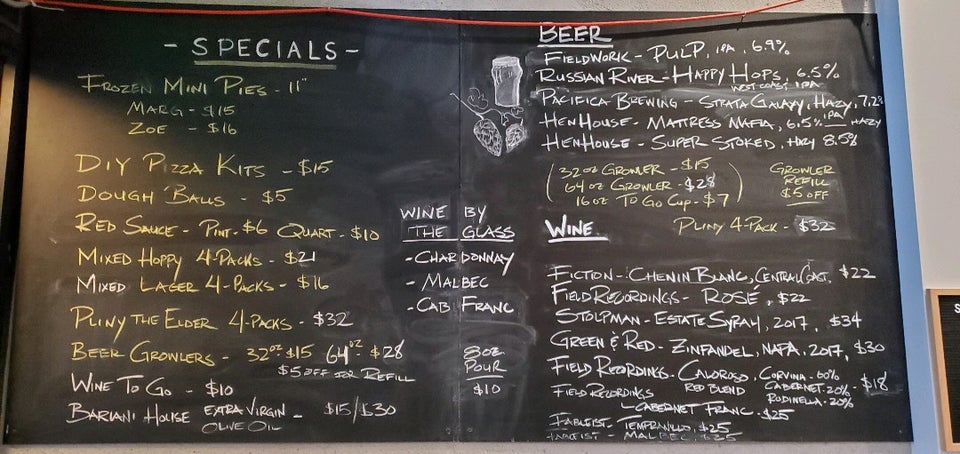 - SPECIALS -
FROZEN MINI PIES - 11"
MARG - $15
ZOE - $16
DIY PIZZA KITS - $15
DOUGH BALLS - $5
RED SAUCE - PINT - $6 QUART - $10
MIXED HOPPY 4-PACKS - $21
MIXED LAGER 4-PACKS - $16
PLINY THE ELDER 4-PACKS - $32
BEER GROWLERS - 32oz - $15 64oz - $28
$5 OFF FOR REFILL
WINE TO GO - $10
BARIANI HOUSE EXTRA VIRGIN - $15/$30
OLIVE OIL
WINE BY
THE GLASS
- CHARDONNAY
- MALBEC
- CAB FRANC
8oz
POUR
$10
BEER
FIELDWORK - PULP, IPA, 6.9%
RUSSIAN RIVER - HAPPY HOPS, 6.5%
WEST COAST IPA
PACIFICA BREWING - STRATA GALAXY, HAZY, 7.2%
IPA
HENHOUSE - MATTRESS MAFIA, 6.5% HAZY
HENHOUSE - SUPER STOKED, HAZY 8.5%
32oz GROWLER - $15
64oz GROWLER - $28
16oz TO GO CUP - $7
GROWLER
REFILL
$5 OFF
PLINY 4-PACK - $32
WINE
FICTION - CHENIN BLANC, CENTRAL COAST, $22
FIELD RECORDINGS - ROSÉ, $22
STOLPMAN - ESTATE SYRAH, 2017, $34
GREEN & RED - ZINFANDEL, NAPA, 2017, $30
FIELD RECORDINGS - CALOROSO, CORVINA - 60%
RED BLEND CABERNET - 20% $18
RODINELLA - 20%
FIELD RECORDINGS
CABERNET FRANC - $25
FABLEIST - TEMPRANILLO, $25
FABLEIST - MALBEC, $25